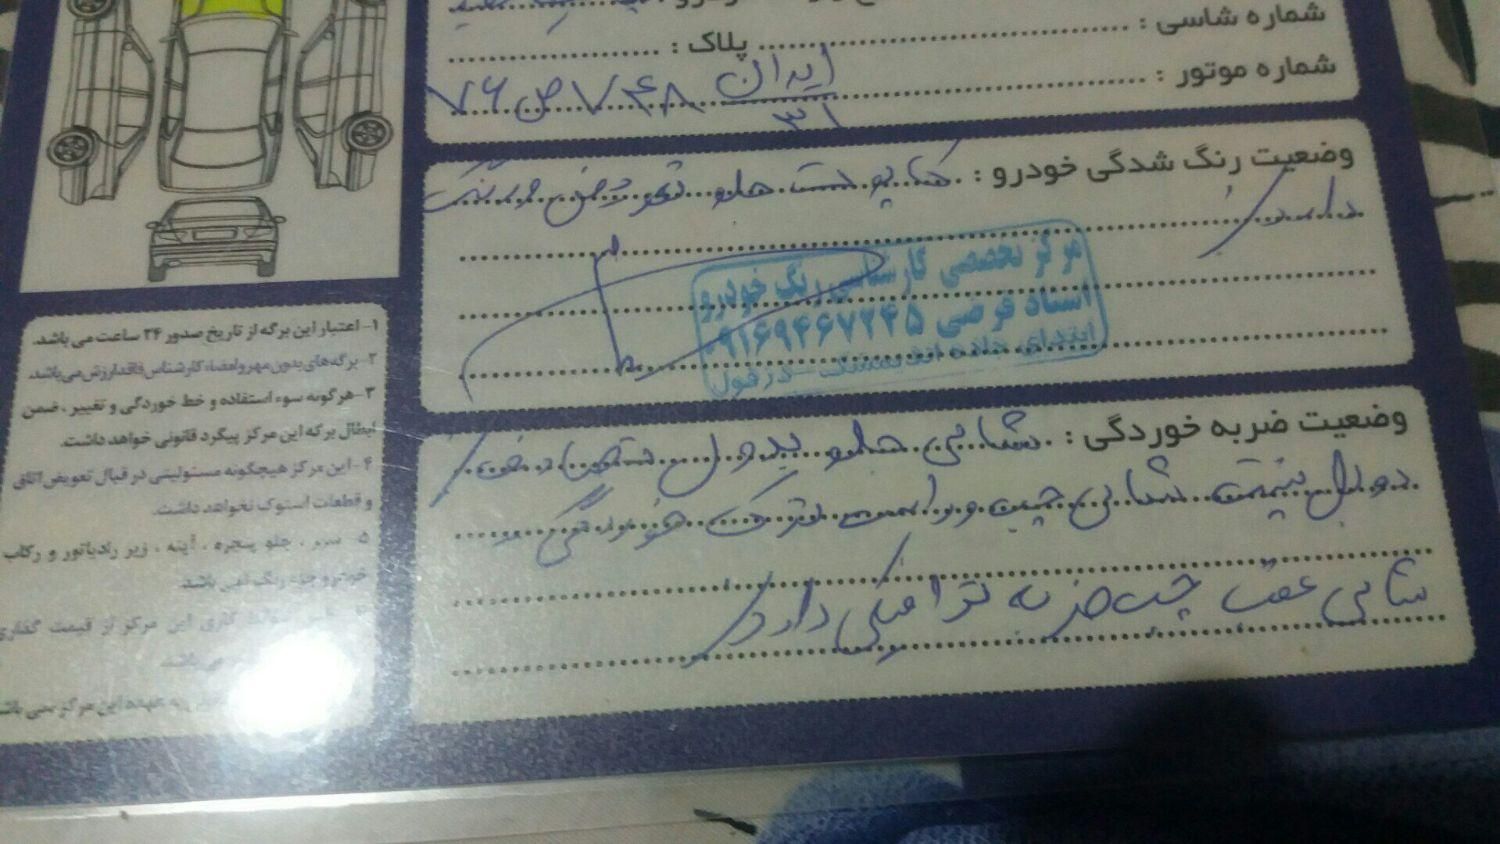 شماره شاسی :
پلاک :
شماره موتور :
ایران ۳۱ ۷۴۸ ص ۷۶
وضعیت رنگ شدگی خودرو : کاپوت جلو تعویض و رنگ
دارد
مرکز تخصصی کارشناسی رنگ خودرو
استاد فرضی ۰۹۱۶۹۴۶۷۲۴۵
ابتدای جاده اندیمشک - دزفول
وضعیت ضربه خوردگی : شاسی جلو بدون
شاسی چپ و راست ترک خوردگی
شاسی عقب چپ ضربه ترافیکی دارد
۱- اعتبار این برگه از تاریخ صدور ۲۴ ساعت می باشد.
۲- برگه های بدون مهر و امضاء کارشناس فاقد ارزش می باشد.
۳- هر گونه سوء استفاده و خط خوردگی و تغییر ، ضمن
ابطال برگه این مرکز پیگرد قانونی خواهد داشت.
۴- این مرکز هیچگونه مسئولیتی در قبال تعویض اتاق
و قطعات استوک نخواهد داشت.
۵- سپر ، جلو پنجره ، آینه ، زیر رادیاتور و رکاب
خودرو جزء رنگ نمی باشد.
کاری این مرکز از قیمت گذاری
می باشد.
به عهده این مرکز نمی باشد